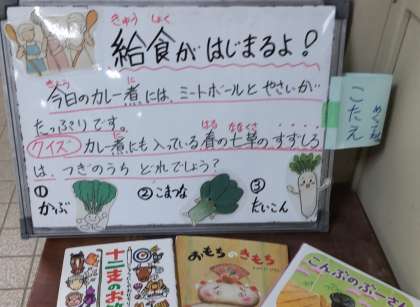 きゅう しょく
給食がはじまるよ!
きょう に
今日のカレー煮には、ミートボールとやさいが
たっぷりです。
はる ななくさ
クイズ カレー煮にも入っている春の七草のすずしろ
は、つぎのうち どれでしょう?
① かぶ
② こまつな
③ だいこん
こたえ
十二支のお
おもちのきもち
こんぶのぶーさん